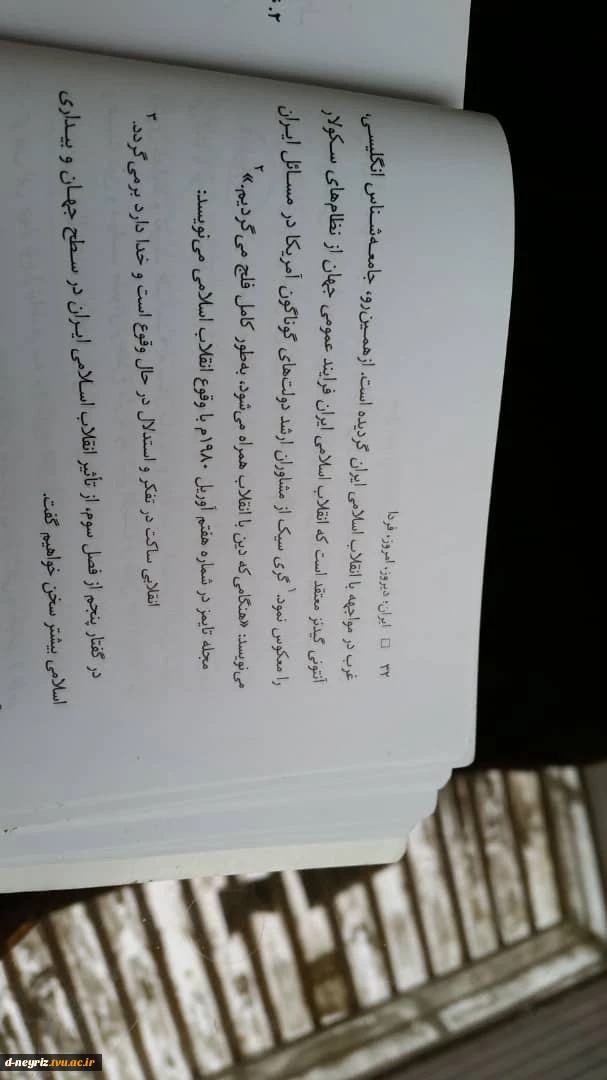 ۳۲ □ ایران؛ دیروز، امروز، فردا
غرب در مواجهه با انقلاب اسلامی ایران گردیده است. ازهمین‌رو، جامعه‌شناس انگلیسی،
آنتونی گیدنز معتقد است که انقلاب اسلامی ایران فرایند عمومی جهان از نظام‌های سکولار
را معکوس نمود.۱ گری سیک از مشاوران ارشد دولت‌های گوناگون آمریکا در مسائل ایران
می‌نویسد: «هنگامی که دین با انقلاب همراه می‌شود، به‌طور کامل فلج می‌گردیم.»۲
مجله تایمز در شماره هفتم آوریل ۱۹۸۰م با وقوع انقلاب اسلامی می‌نویسد:
انقلابی ساکت در تفکر و استدلال در حال وقوع است و خدا دارد برمی‌گردد.۳
در گفتار پنجم از فصل سوم، از تأثیر انقلاب اسلامی ایران در سطح جهان و بیداری
اسلامی بیشتر سخن خواهیم گفت.
d-neyriz.tvu.ac.ir